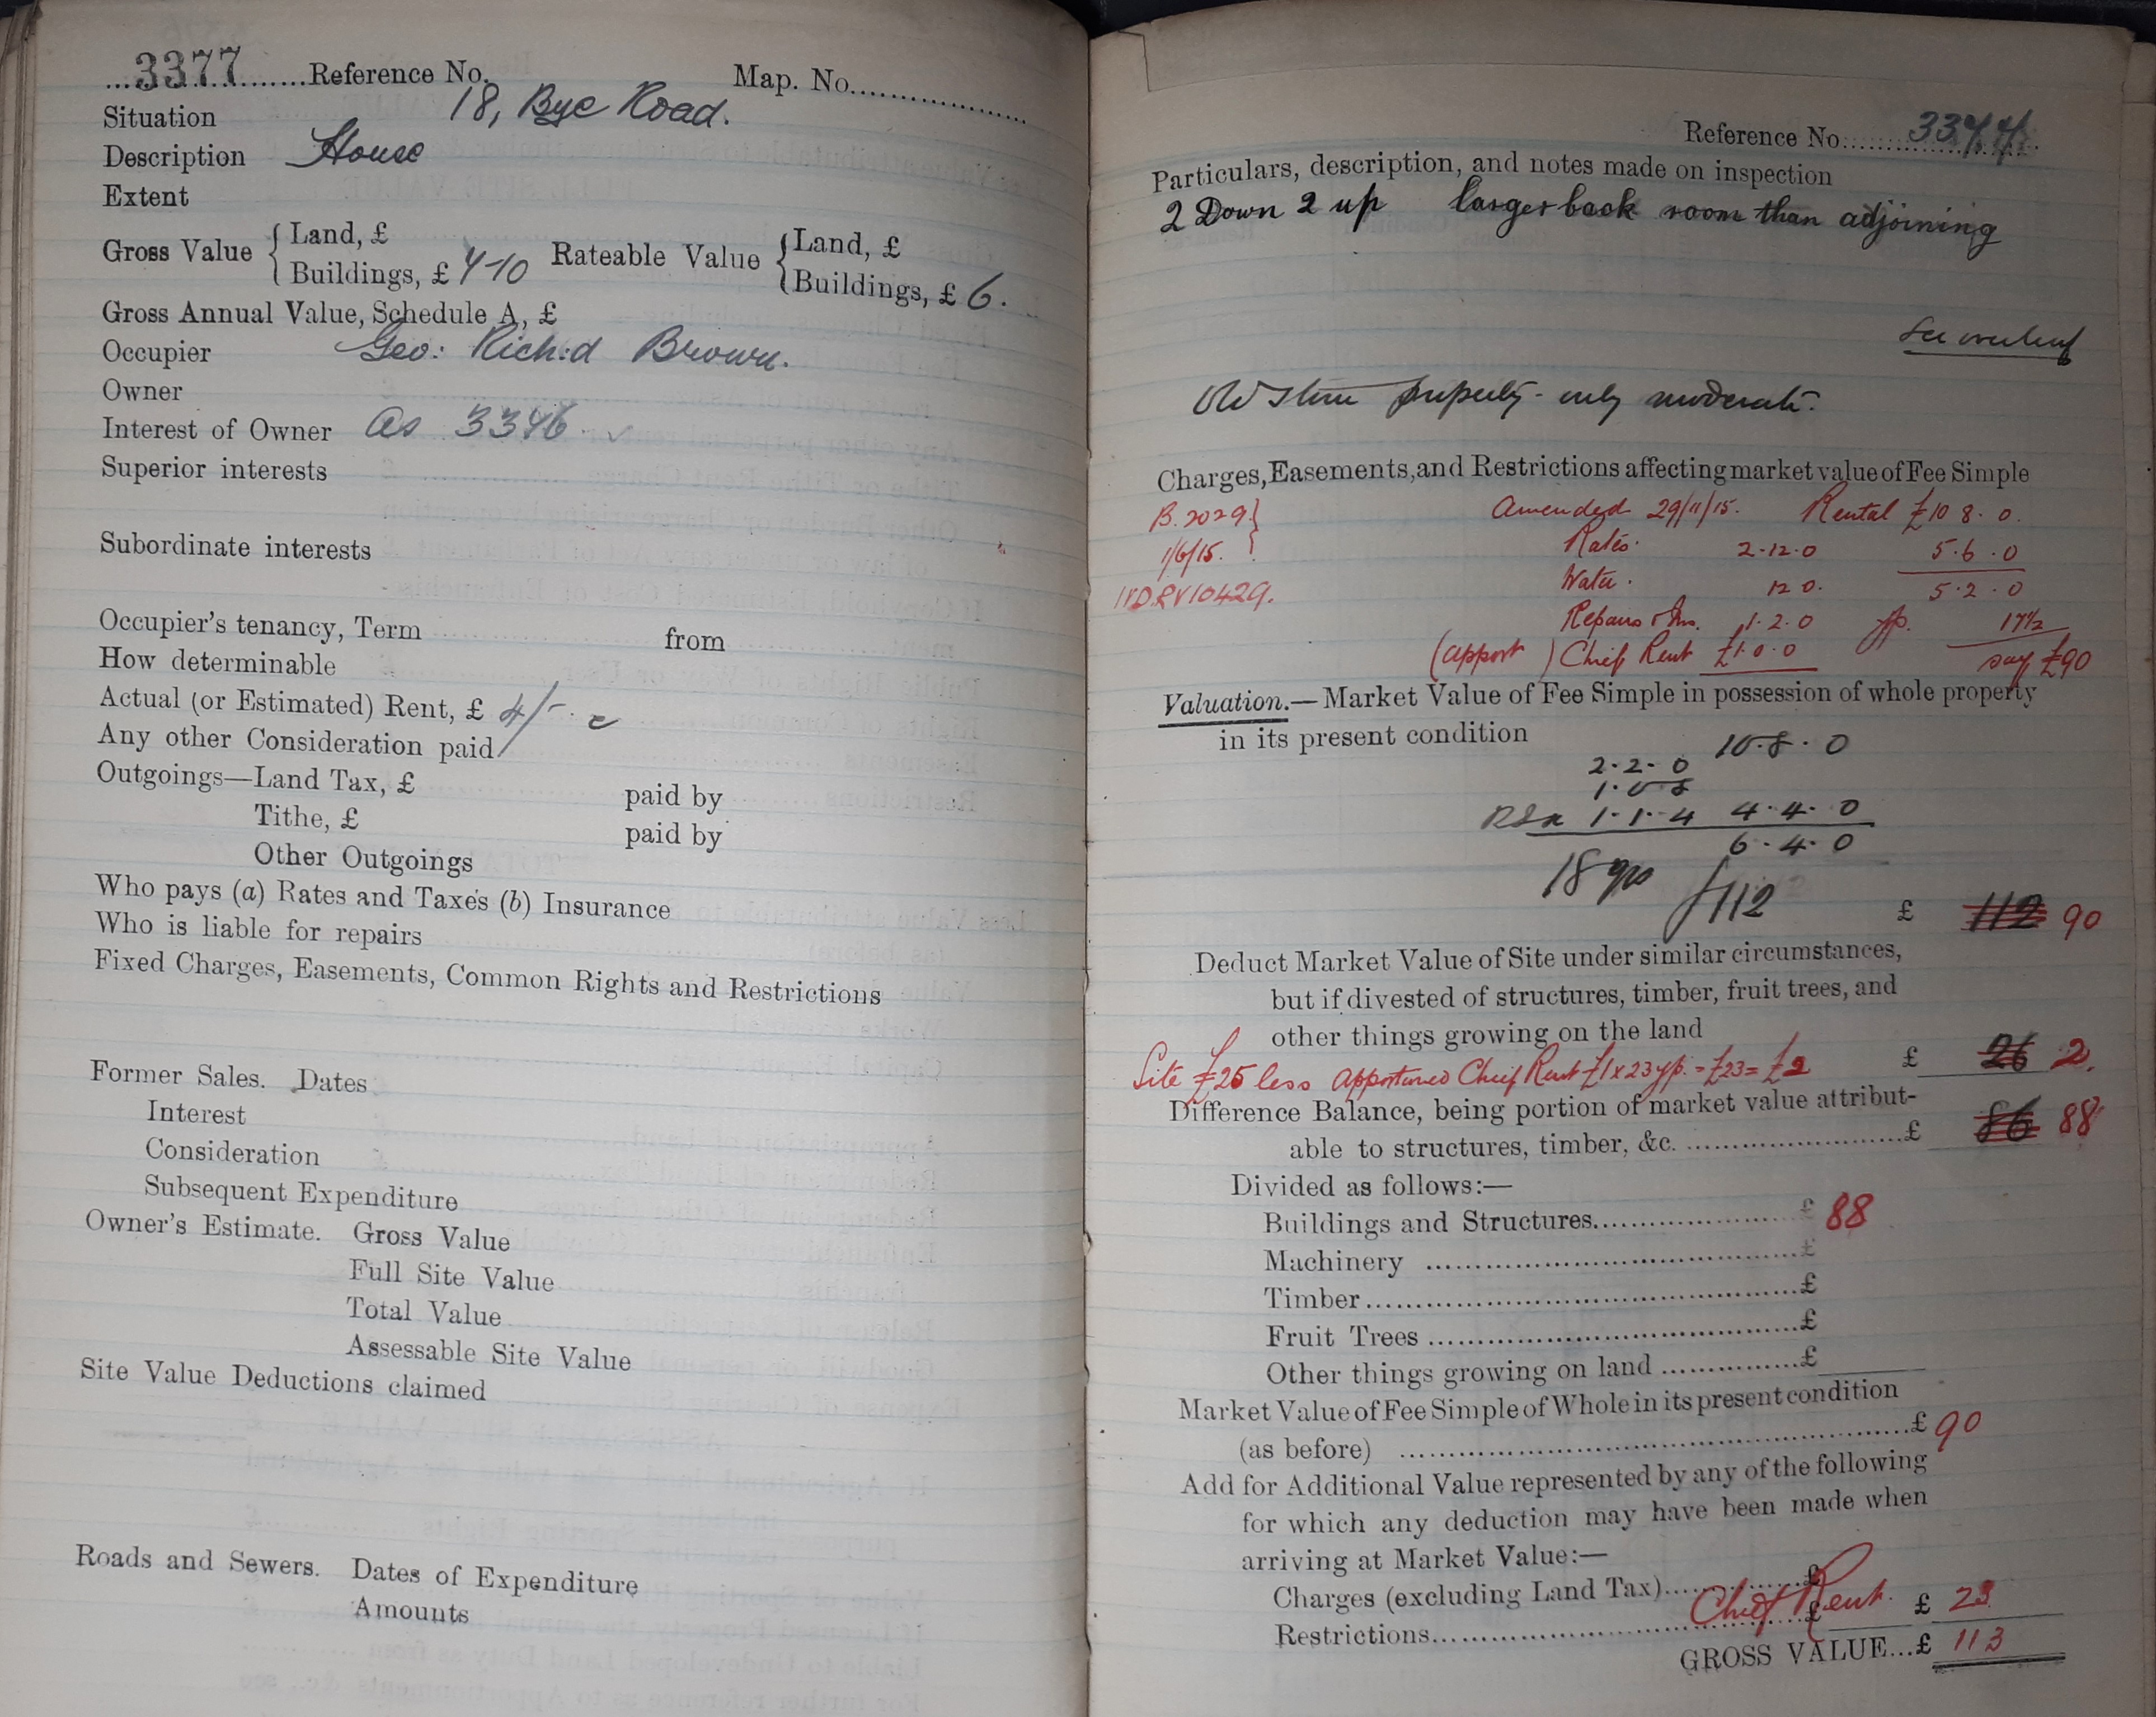 3377 Reference No. Map. No.
Situation 18, Bye Road.
Description House
Extent
Gross Value { Land, £
Buildings, £ 7-10
Rateable Value { Land, £
Buildings, £ 6.
Gross Annual Value, Schedule A, £
Occupier Geo: Rich:d Brown.
Owner
Interest of Owner As 3376
Superior interests
Subordinate interests
Occupier's tenancy, Term from
How determinable
Actual (or Estimated) Rent, £ 4/-
Any other Consideration paid
Outgoings—Land Tax, £ paid by
Tithe, £ paid by
Other Outgoings
Who pays (a) Rates and Taxes (b) Insurance
Who is liable for repairs
Fixed Charges, Easements, Common Rights and Restrictions
Former Sales. Dates
Interest
Consideration
Subsequent Expenditure
Owner's Estimate. Gross Value
Full Site Value
Total Value
Assessable Site Value
Site Value Deductions claimed
Roads and Sewers. Dates of Expenditure
Amounts
Reference No. 3377.
Particulars, description, and notes made on inspection
2 Down 2 up larger back room than adjoining
See overleaf
Old stone property - only moderate.
Charges, Easements, and Restrictions affecting market value of Fee Simple
B. 2029 } Amended 29/11/15. Rental £10 8. 0.
1/6/15. Rates. 2.12.0 5.6.0
IVDRV10429. Water. 12 0. 5.2.0
Repairs & Ins. 1.2.0 yp. 17½
(apport) Chief Rent £1.0.0 say £90
Valuation.—Market Value of Fee Simple in possession of whole property
in its present condition 10.8.0
2.2.0
1.0.8
1.1.4 4.4.0
6.4.0
18 yps £112 £ 112 90
Deduct Market Value of Site under similar circumstances,
but if divested of structures, timber, fruit trees, and
other things growing on the land
Site £25 less apportioned Chief Rent £1 x 23 yp. = £23 = £2 £ 26 2.
Difference Balance, being portion of market value attribut-
able to structures, timber, &c. £ 86 88
Divided as follows:—
Buildings and Structures £ 88
Machinery £
Timber £
Fruit Trees £
Other things growing on land £
Market Value of Fee Simple of Whole in its present condition
(as before) £ 90
Add for Additional Value represented by any of the following
for which any deduction may have been made when
arriving at Market Value:—
Charges (excluding Land Tax) £
Chief Rent. £ 23
Restrictions £
GROSS VALUE...£ 113